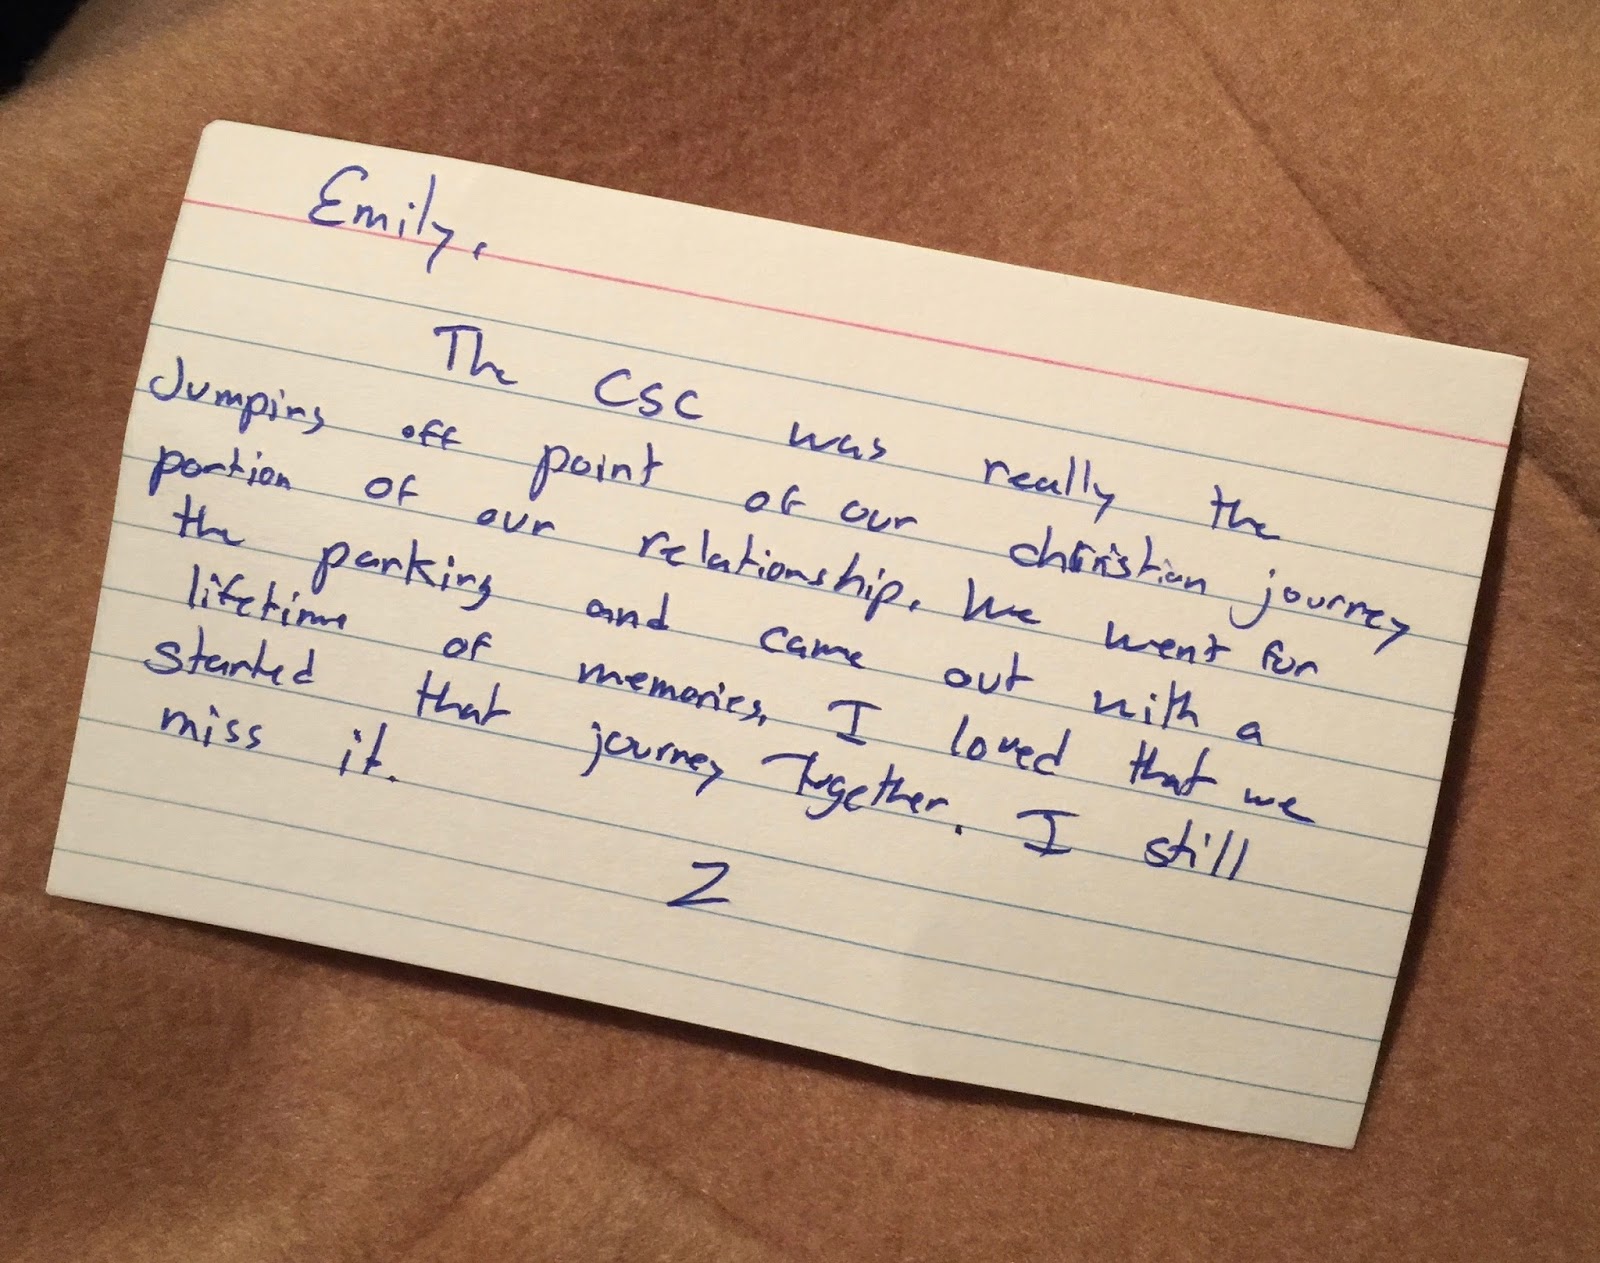 Emily,
The CSC was really the
Jumping off point of our christian journey
portion of our relationship. We went for
the parking and came out with a
lifetime of memories. I loved that we
started that journey Together. I still
miss it.
Z